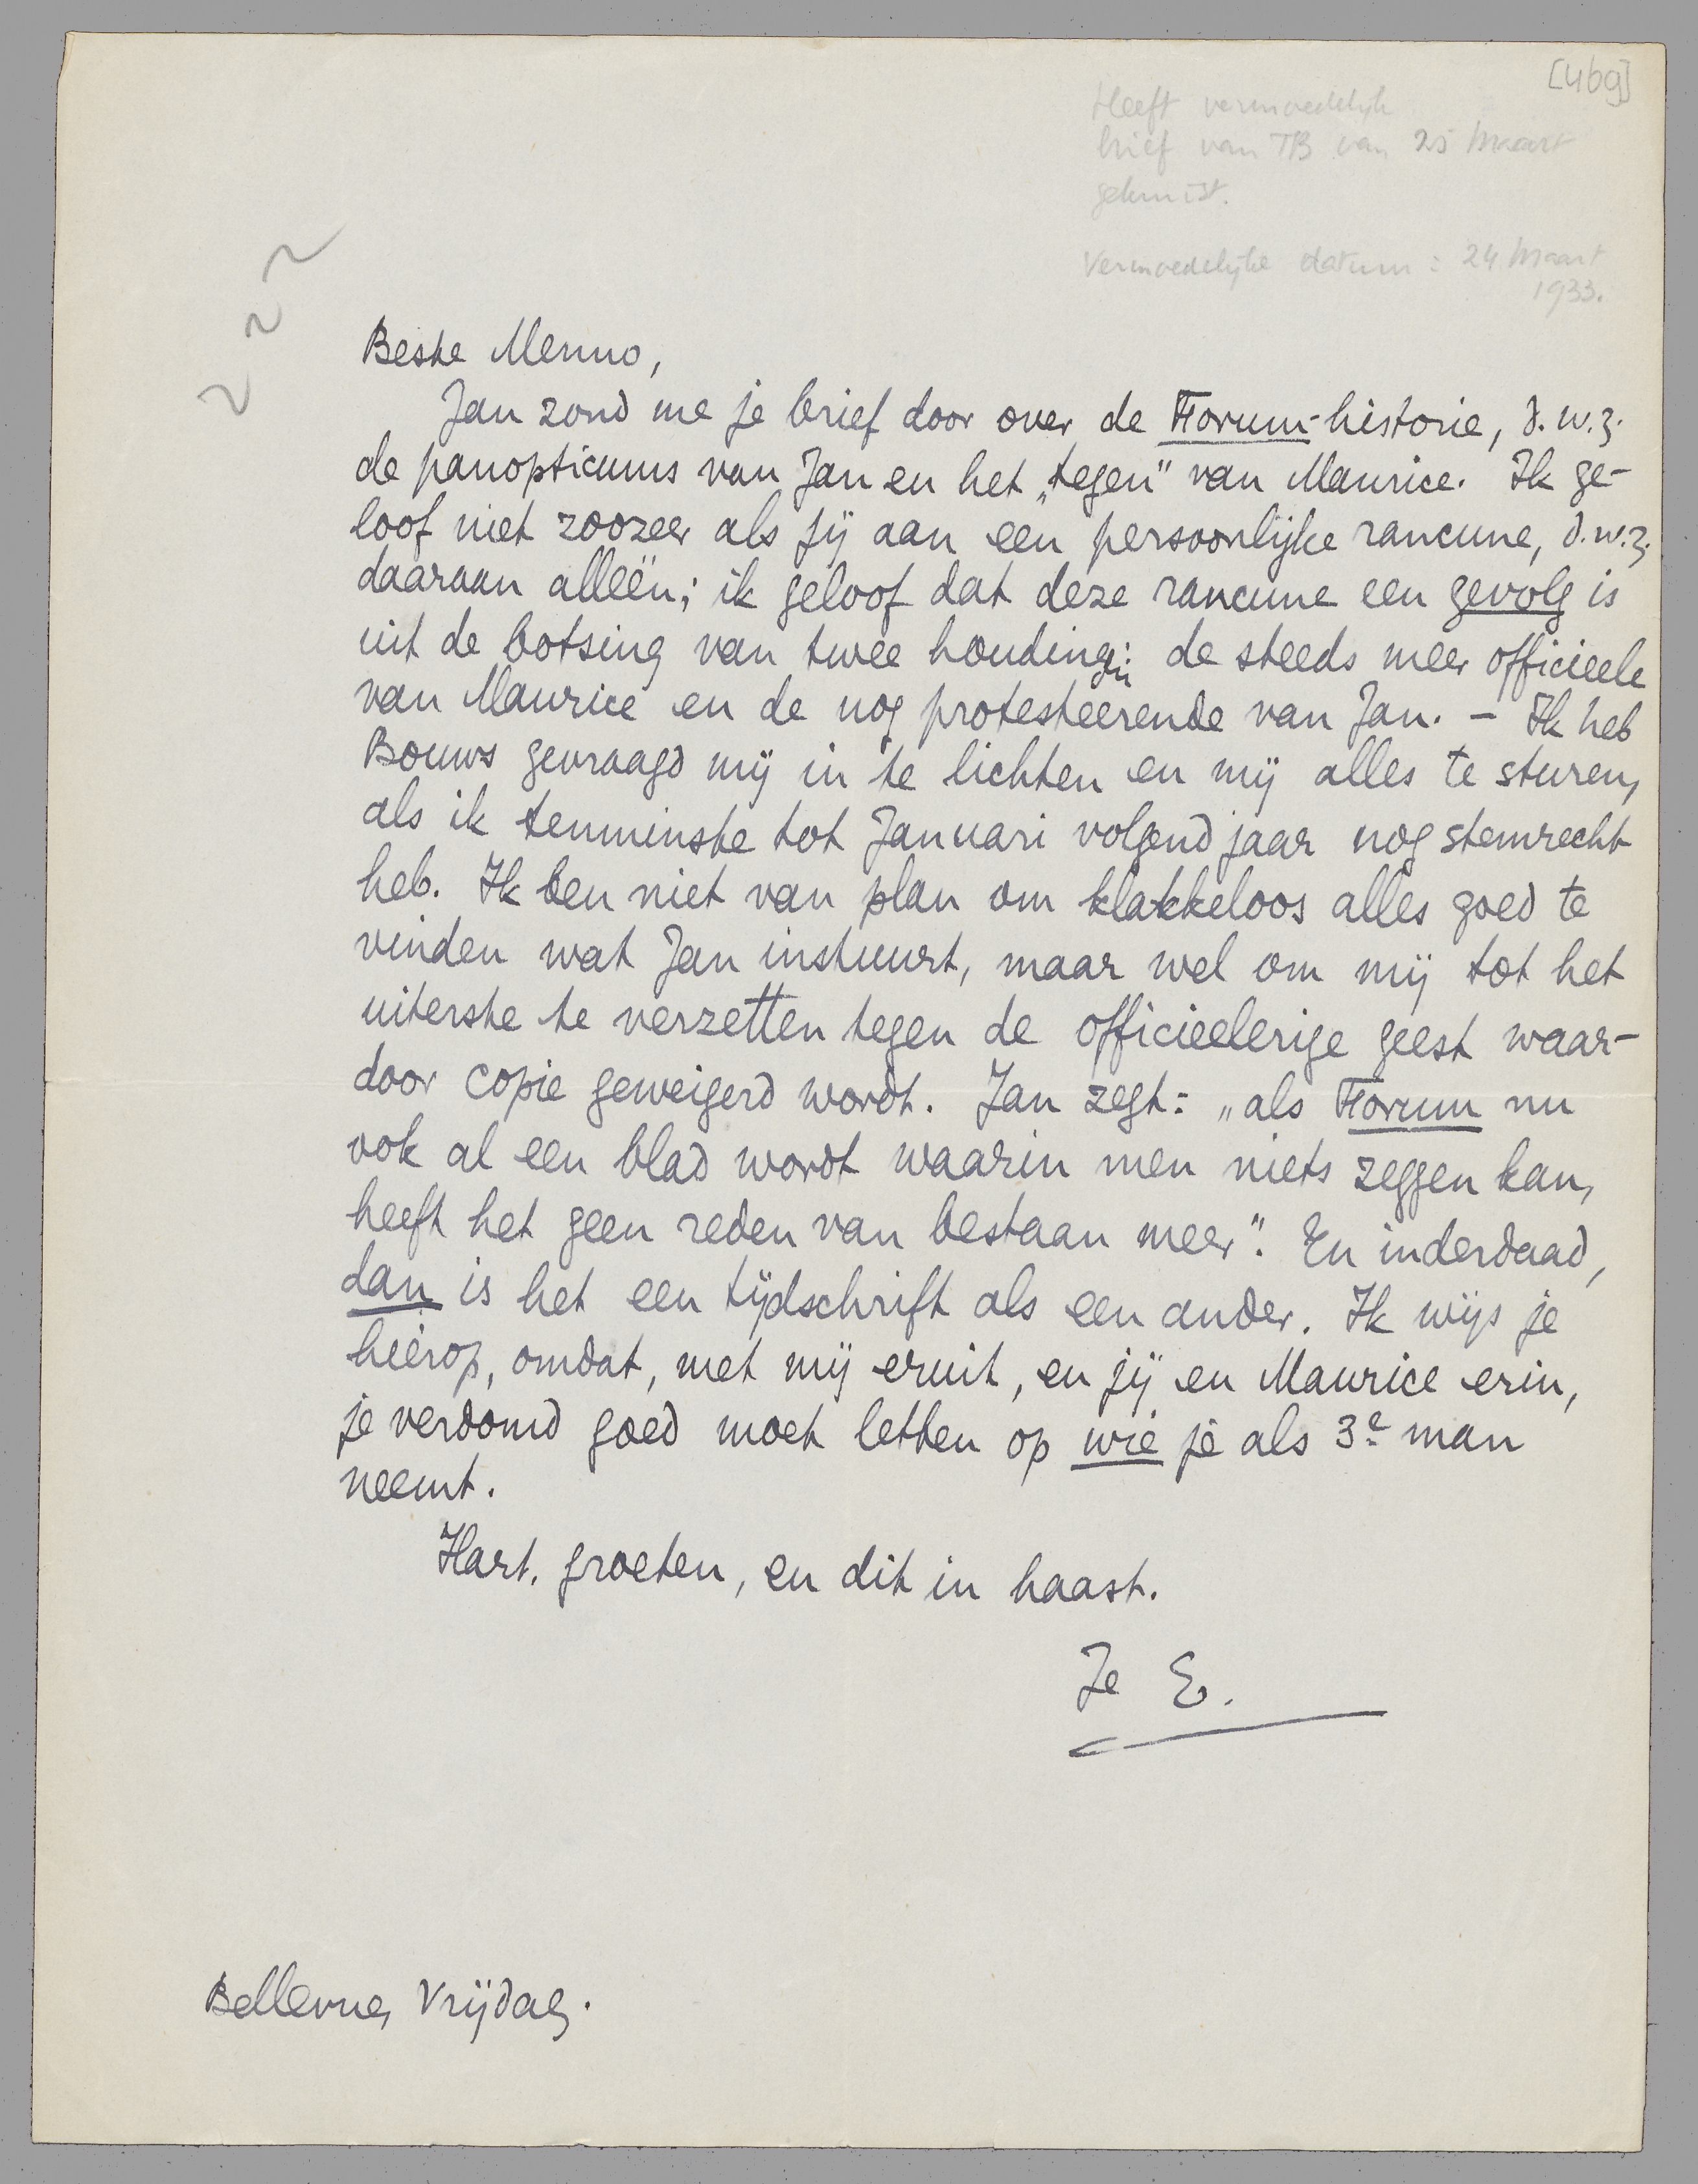 [469]
Heeft vermoedelijk
brief van TB van 25 Maart
gekruist.
Vermoedelijke datum: 24 Maart
1933.
Beste Menno,
Jan zond me je brief door over de Forum-historie, d.w.z.
de panopticums van Jan en het „tegen” van Maurice. Ik ge-
loof niet zoozeer als jij aan een persoonlijke rancune, d.w.z.
daaraan alléén; ik geloof dat deze rancune een gevolg is
uit de botsing van twee houdingen: de steeds meer officieele
van Maurice en de nog protesteerende van Jan. – Ik heb
Bouws gevraagd mij in te lichten en mij alles te sturen,
als ik tenminste tot Januari volgend jaar nog stemrecht
heb. Ik ben niet van plan om klakkeloos alles goed te
vinden wat Jan instuurt, maar wel om mij tot het
uiterste te verzetten tegen de officieelerige geest waar-
door copie geweigerd wordt. Jan zegt: „als Forum nu
ook al een blad wordt waarin men niets zeggen kan,
heeft het geen reden van bestaan meer”. En inderdaad,
dan is het een tijdschrift als een ander. Ik wijs je
hierop, omdat, met mij eruit, en jij en Maurice erin,
je verdomd goed moet letten op wie je als 3e man
neemt.
Hart. groeten, en dit in haast.
Je E.
Bellevue, Vrijdag.